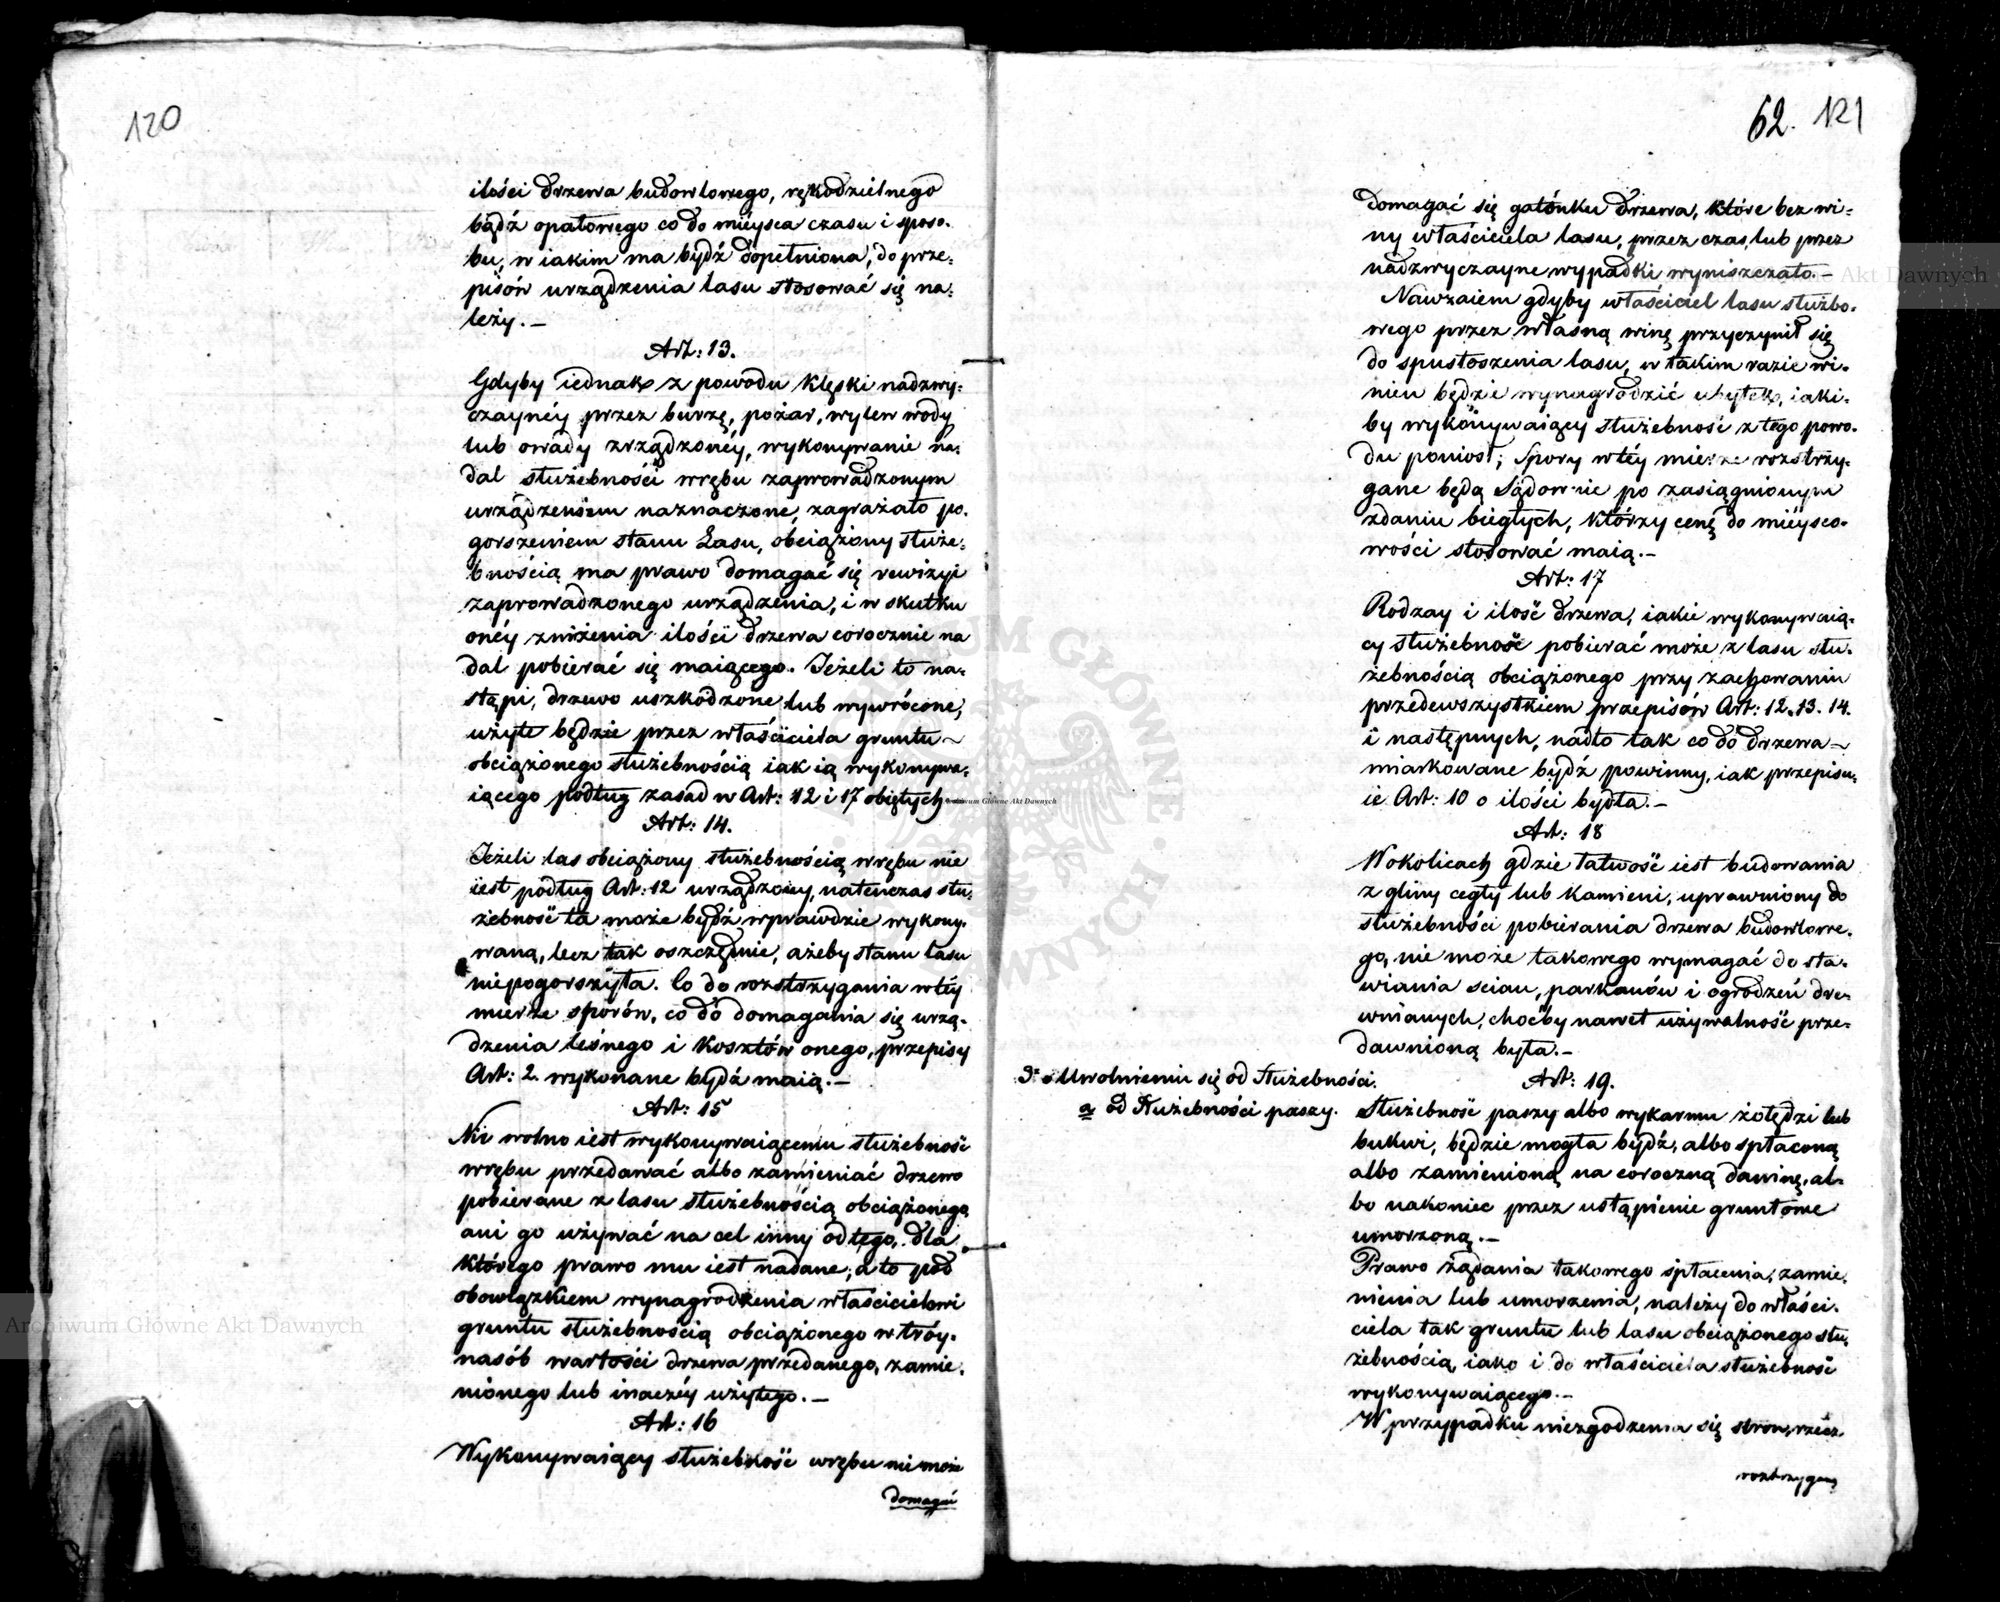 120
ilości drzewa budowlowego, rękodzielnego
bądź opałowego co do mieysca czasu i sposo-
bu, w iakim ma bydź dopełniona, do prze-
pisów urządzenia lasu stosować się na-
leży. —
Art: 13.
Gdyby iednak z powodu klęski nadzwy-
czaynéy przez burzę, pożar, wylew wody
lub owady zrządzonéy, wykonywanie na-
dal służebności wrębu zaprowadzonym
urządzeniem naznaczone, zagrażało po-
gorszeniem stanu Lasu, obciążony służe-
bnością ma prawo domagać się rewizyi
zaprowadzonego urządzenia, i w skutku
onéy zniżenia ilości drzewa corocznie na
dal pobierać się maiącego. Jeżeli to na-
stąpi, drzewo uszkodzone lub wywrócone,
użyte będzie przez właściciela gruntu
obciążonego służebnością iak ią wykonywa-
iącego podług zasad w Art: 12 i 17 obiętych.
Art: 14.
Jeżeli las obciążony służebnością wrębu nie
iest podług Art: 12 urządzony, natenczas słu-
żebność ta może bydź wprawdzie wykony-
waną, lecz tak oszczędnie, ażeby stanu lasu
niepogorszyła. Co do rozstrzygania w téy
mierze sporów, co do domagania się urzą-
dzenia leśnego i kosztów onego, przepisy
Art: 2. wykonane bydź maią. —
Art: 15
Nie wolno iest wykonywaiącemu służebność
wrębu przedawać albo zamieniać drzewo
pobierane z lasu służebnością obciążonego
ani go używać na cel inny od tego, dla
którego prawo mu iest nadane; a to pod
obowiązkiem wynagrodzenia właścicielowi
gruntu służebnością obciążonego w tróy-
nasób wartości drzewa przedanego, zamie-
nionego lub inaczéy użytego. —
Art: 16
Wykonywaiący służebność wrębu nie może
domagać
62. 121
domagać się gatónku drzewa, które bez wi-
ny właściciela lasu, przez czas, lub przez
nadzwyczayne wypadki wyniszczało. —
Nawzaiem gdyby właściciel lasu służbo-
wego przez własną winę przyczynił się
do spustoszenia lasu, w takim razie wi-
nien będzie wynagrodzić ubytek, iaki-
by wykonywaiący służebność z tego powo-
du poniosł; Spory w téy mierze rozstrzy-
gane będą Sądownie po zasiągnionym
zdaniu biegłych, którzy cenę do mieysco-
wości stosować maią. —
Art: 17
Rodzay i ilość drzewa, iakie wykonywaią-
cy służebność pobierać może z lasu słu-
żebnością obciążonego przy zachowaniu
przedewszystkiem przepisów Art: 12. 13. 14.
i następnych, nadto tak co do drzewa
miarkowane bydź powinny, iak przepisu-
ie Art: 10 o ilości bydła. —
Art: 18
W okolicach gdzie łatwość iest budowania
z gliny cegły lub kamieni, uprawniony do
służebności pobierania drzewa budowlowe-
go, nie może takowego wymagać do sta-
wiania scian, parkanów i ogrodzeń dre-
wnianych, choćby nawet używalność prze-
dawnioną była. —
3º o Uwolnieniu się od Służebności.
Art: 19.
a od Służebności paszy.
Służebność paszy albo wykarmu żołędzi lub
bukwi, będzie mogła bydź, albo spłaconą
albo zamienioną na coroczną daninę, al-
bo nakoniec przez ustąpienie gruntowe
umorzoną. —
Prawo żądania takowego spłacenia, zamie-
nienia lub umorzenia, należy do właści-
ciela tak gruntu lub lasu obciążonego słu-
żebnością, iako i do właściciela służebność
wykonywaiącego. —
W przypadku niezgodzenia się stron, rzecz
roztrzygną
Archiwum Główne Akt Dawnych